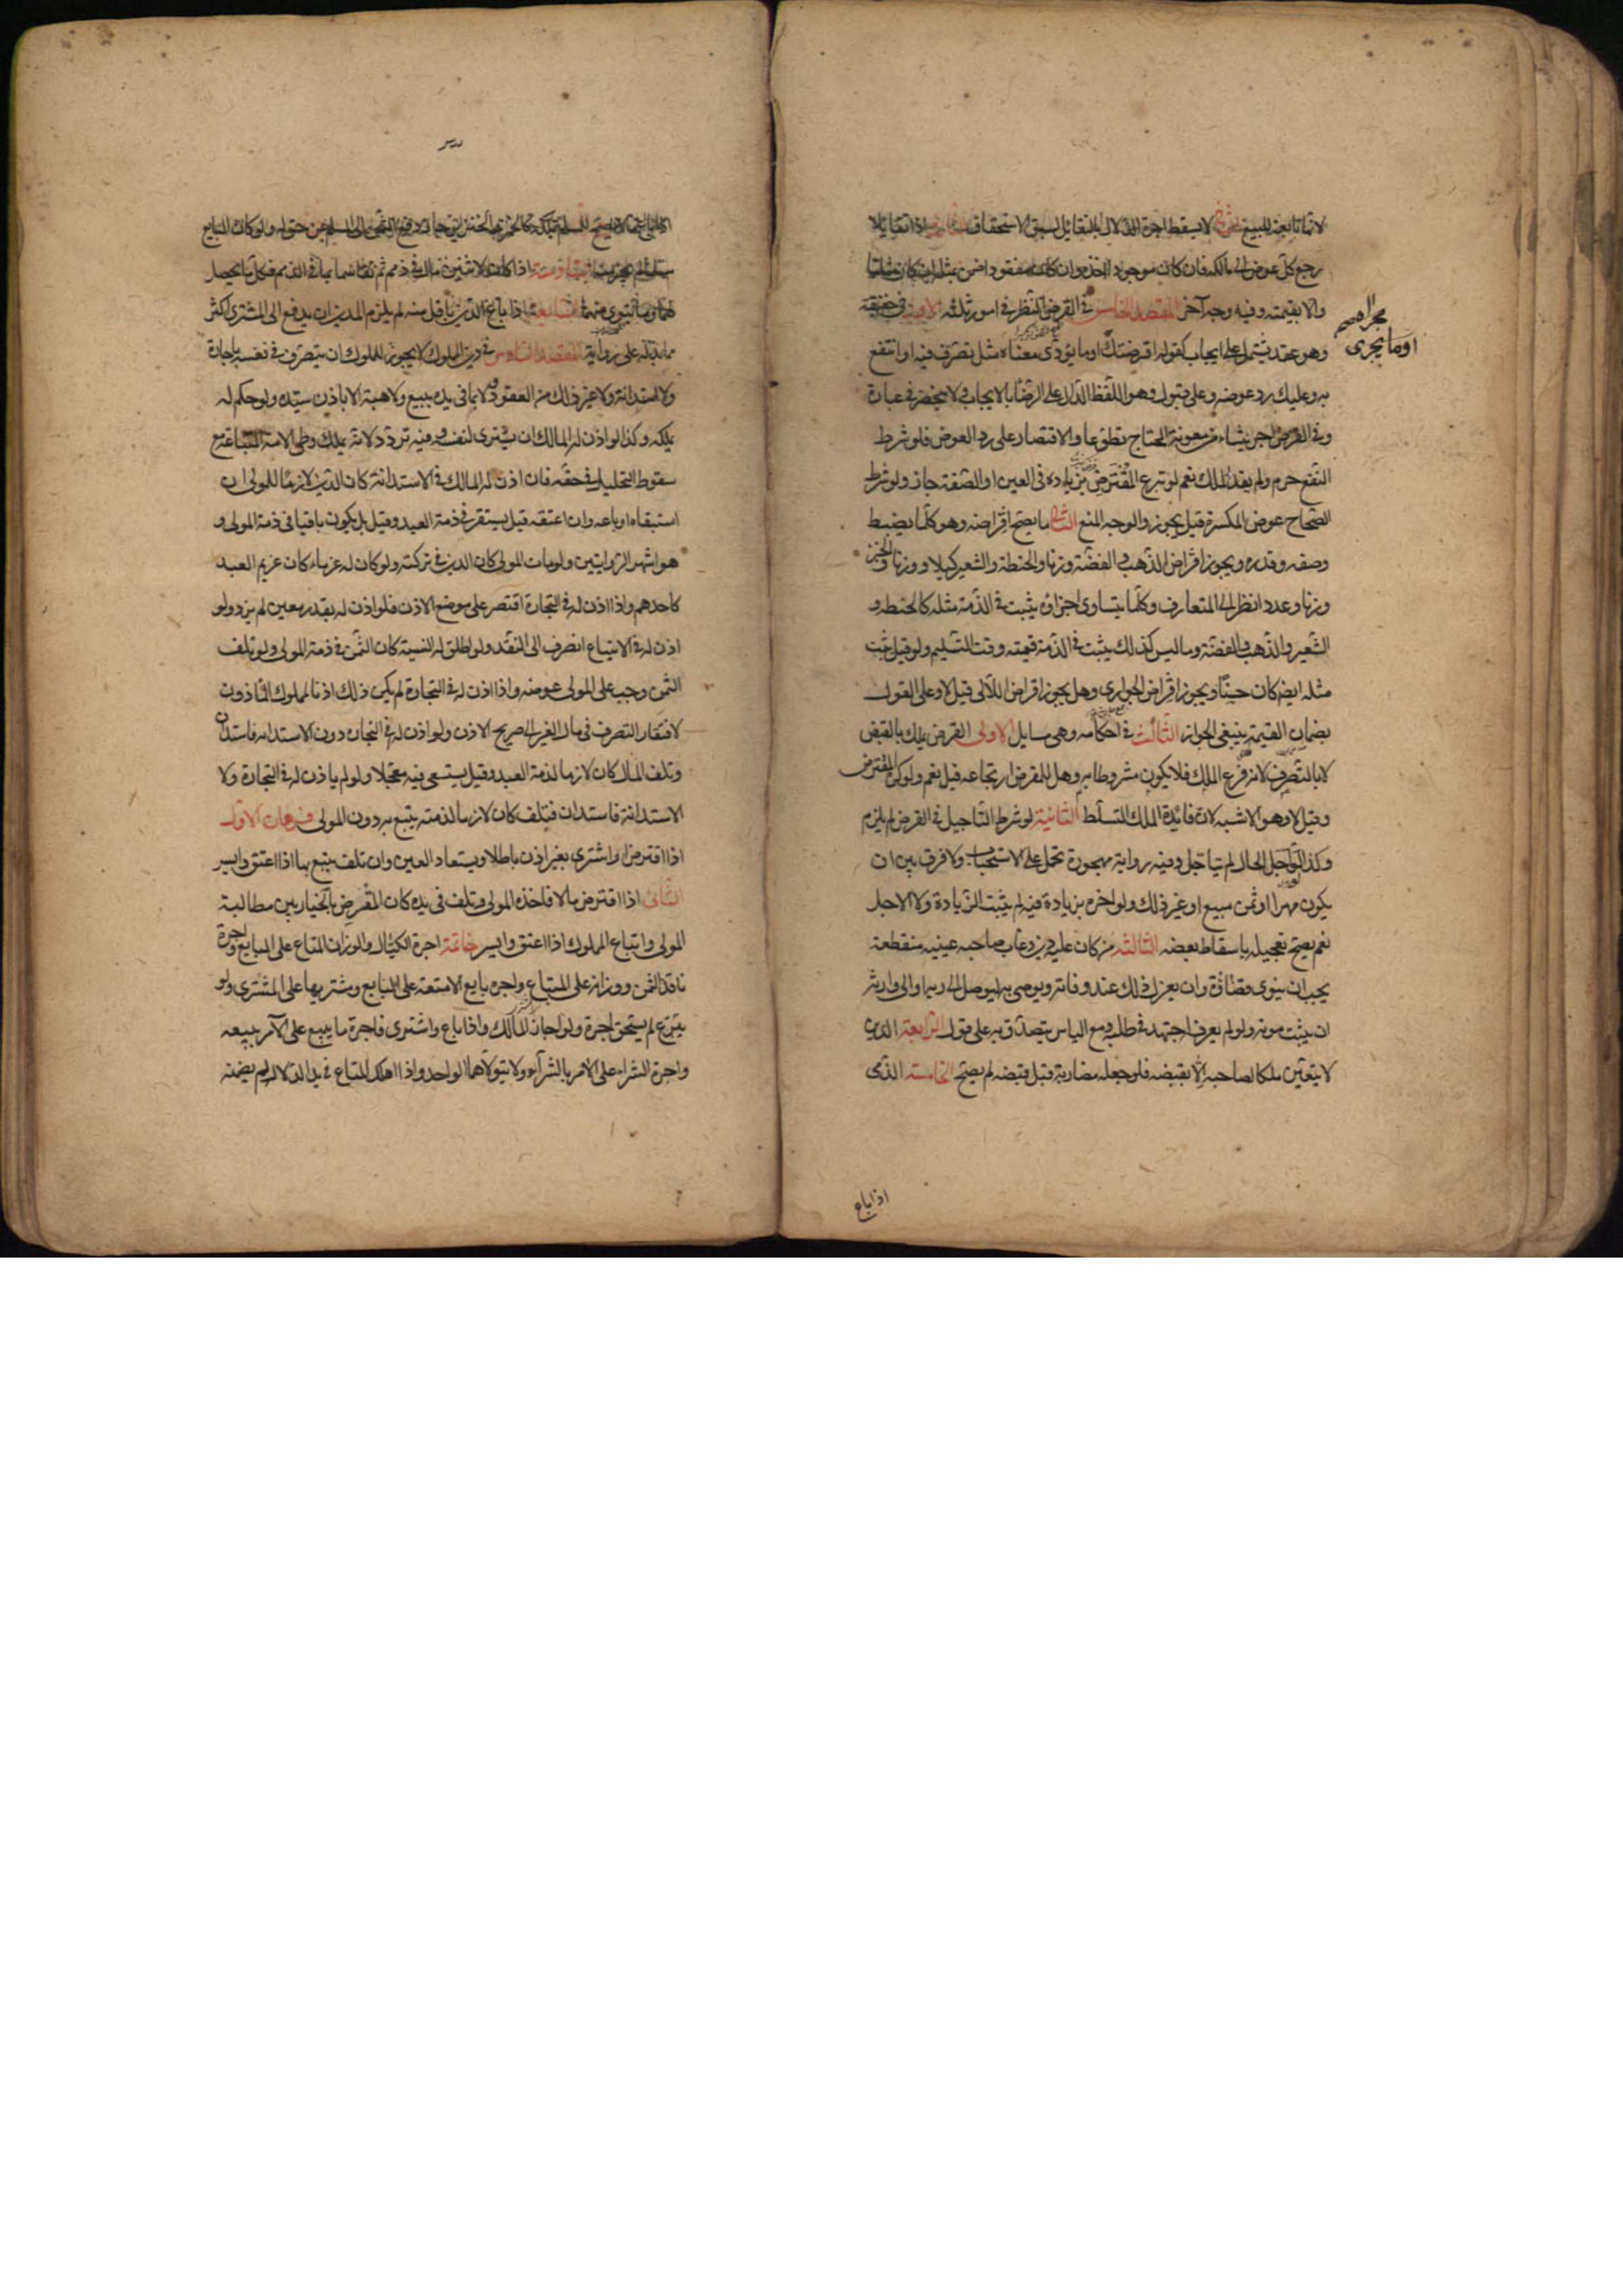 لانها تابعة للبيع الثانى لا يسقط اجرة الدلال بالتقايل لسبق الاستحقاق الثالث اذا تقايلا
رجع كل عوض الى مالكه فان كان موجودا اخذه وان كان مفقودا ضمن بمثله ان كان مثليا
والا بقيمته وفيه وجه آخر المقصد الخامس فى القرض والنظر فى امور ثلثة الاول فى حقيقته
وهو عقد يشتمل على ايجاب كقوله اقرضتك او ما يؤدى معناه مثل تصرف فيه او انتفع
به وعليك رد عوضه وعلى قبول وهو اللفظ الدال على الرضا بالايجاب ولا ينحصر فى عبارة
وفى القرض اجر ينشاء من معونة المحتاج تطوعا والاقتصار على رد العوض فلو شرط
النفع حرم ولم يفد الملك نعم لو تبرع المقترض بزيادة فى العين او الصفة جاز ولو شرط
الصحاح عوض المكسرة قيل يجوز والوجه المنع الثانى ما يصح اقراضه وهو كلما يضبط
وصفه وقدره ويجوز اقراض الذهب والفضة وزنا والحنطة والشعير كيلا ووزنا والخبز
وزنا وعددا نظرا الى المتعارف وكلما يتساوى اجزاؤه يثبت فى الذمة مثله كالحنطة و
الشعير والذهب والفضة وما ليس كذلك يثبت فى الذمة قيمته وقت التسليم ولو قيل يثبت
مثله ايضا كان حسنا ويجوز اقراض الجوارى وهل يجوز اقراض اللآلى قيل لا وعلى القول
بضمان القيمة ينبغى الجواز الثالث فى احكامه وهى مسايل الاولى القرض يملك بالقبض
لا بالتصرف لانه فرع الملك فلا يكون مشروطا به وهل للمقرض ارتجاعه قيل نعم ولو كره المقترض
وقيل لا وهو الاشبه لان فائدة الملك التسلط الثانية لو شرط التاجيل فى القرض لم يلزم
وكذا لو اجل الحال لم يتاجل وفيه رواية مهجورة تحمل على الاستحباب ولا فرق بين ان
يكون مهرا او ثمن مبيع او غير ذلك ولو اخره بزيادة فيه لم يثبت الزيادة ولا الاجل
نعم يصح تعجيله باسقاط بعضه الثالثة من كان عليه دين وغاب صاحبه غيبة منقطعة
يجب ان ينوى قضاؤه وان يعزل ذلك عند وفاته ويوصى به ليوصل الى ربه او الى وارثه
ان يثبت موته ولو لم يعرفه اجتهد فى طلبه ومع الياس يتصدق به على قول الرابعة الدين
لا يتعين ملكا لصاحبه الا بقبضه فلو جعله مضاربة قبل قبضه لم يصح الخامسة الذمى
مجراهم
او ما يجرى
اذا باع
اذا باع ما لا يصح للمسلم تملكه كالخمر والخنزير جاز دفع الثمن الى المسلم عن حق له ولو كان البايع
مسلما لم يجز السادسة اذا كان لاثنين مال فى ذمم ثم تقاسما بما فى الذمم فكل ما يحصل
لهما وما يتوى منهما السابعة اذا باع الدين باقل منه لم يلزم المدين ان يدفع الى المشترى اكثر
مما بذله على رواية المقصد السادس فى دين المملوك لا يجوز للملوك ان يتصرف فى نفسه باجارة
ولا استدانة ولا غير ذلك من العقود ولا بما فى يده ببيع ولا هبة الا باذن سيده ولو حكم له
بملكه وكذا لو اذن له المالك ان يشترى لنفسه وفيه تردد لانه يملك وطى الامة المبتاعة مع
سقوط التحليل فى حقه فان اذن له المالك فى الاستدانة كان الدين لازما للمولى ان
استبقاه او باعه وان اعتقه قيل يستقر فى ذمة العبد وقيل بل يكون باقيا فى ذمة المولى و
هو اشهر الروايتين ولو مات المولى كان الدين فى تركته ولو كان له غرماء كان غريم العبد
كاحدهم واذا اذن له فى التجارة اقتصر على موضع الاذن فلو اذن له بقدر معين لم يزد ولو
اذن له فى الابتياع انصرف الى النقد ولو اطلق له النسية كان الثمن فى ذمة المولى ولو تلف
الثمن وجب على المولى عوضه واذا اذن له فى التجارة لم يكن ذلك اذنا لمملوك الماذون
لافتقار التصرف فى مال الغير الى صريح الاذن ولو اذن له فى التجارة دون الاستدانة فاستدان
وتلف المال كان لازما لذمة العبد وقيل يستسعى فيه معجلا ولو لم ياذن له فى التجارة ولا
الاستدانة فاستدان فتلف كان لازما لذمته يتبع به دون المولى فرعان الاول
اذا اقترض او اشترى بغير اذن كان باطلا ويستعاد العين وان تلف يتبع بها اذا اعتق وايسر
الثانى اذا اقترض مالا فاخذه المولى وتلف فى يده كان المقرض بالخيار بين مطالبة
المولى واتباع المملوك اذا اعتق وايسر خاتمة اجرة الكيال والوزان المتاع على البايع واجرة
ناقد الثمن ووزانه على المبتاع واجرة بايع الامتعة على البايع ومشتريها على المشترى ولو
تبرع لم يستحق اجرة ولو اجاز المالك واذا باع واشترى فاجرة ما يبيع على الآمر ببيعه
واجرة الشراء على الآمر بالشراء ولا يتولاهما الواحد واذا هلك المتاع فى يد الدلال لم يضمنه